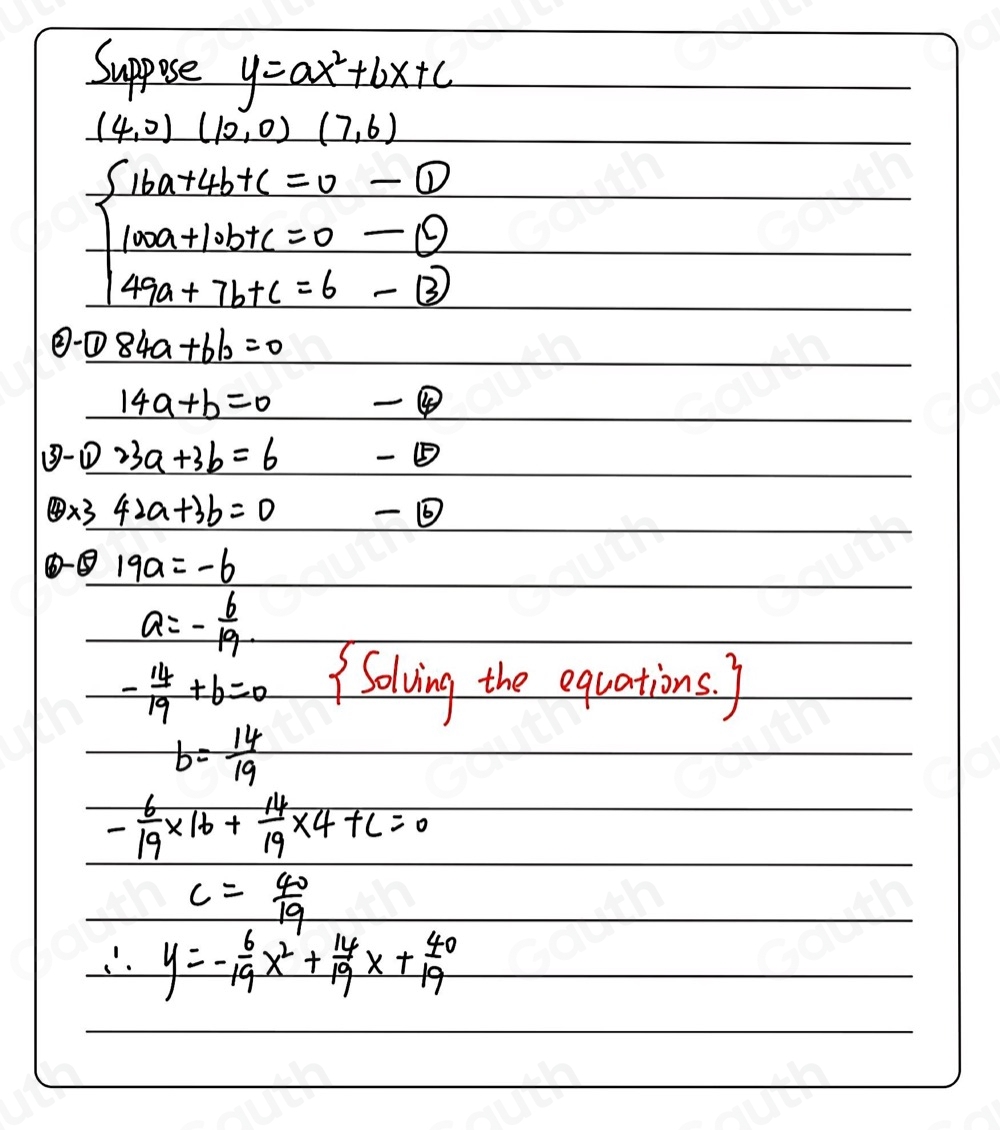 Suppose y=ax²+bx+c
(4,0) (10,0) (7,6)
{16a+4b+c=0 — ①
100a+10b+c=0 — ②
49a+7b+c=6 — ③
②-① 84a+6b=0
14a+b=0 — ④
③-① 23a+3b=6 — ⑤
④×3 42a+3b=0 — ⑥
⑥-⑤ 19a=-6
a=-6/19.
-14/19+b=0 {Solving the equations.}
b=14/19
-6/19×16+14/19×4+c=0
c=40/19
∴ y=-6/19x²+14/19x+40/19
Gauth